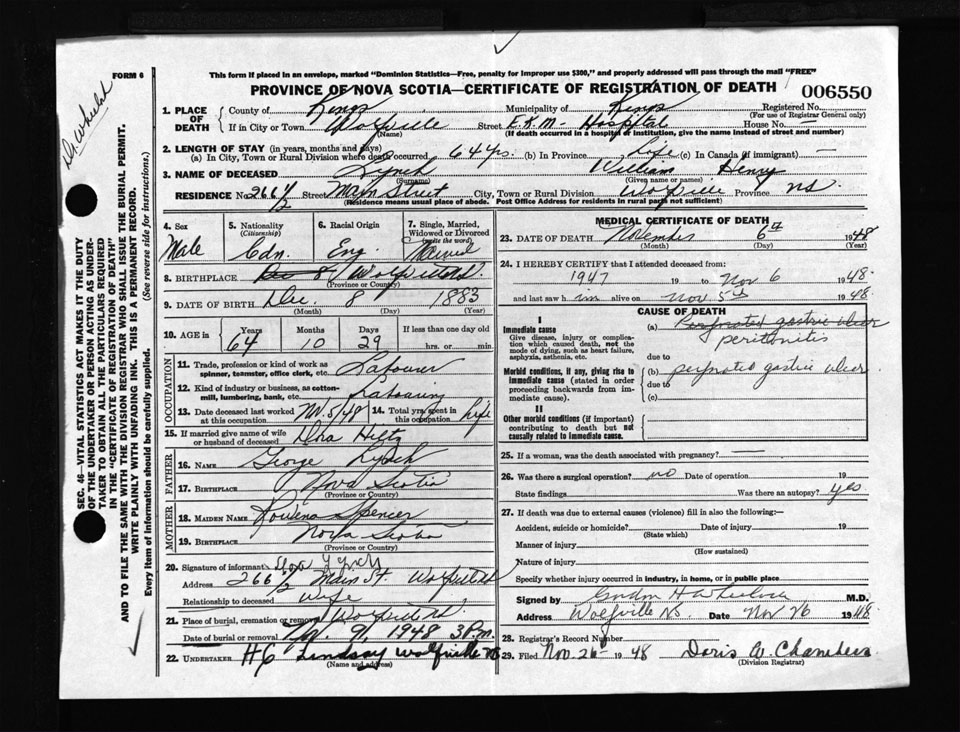 FORM 6
Dr. Wheelock
This form if placed in an envelope, marked "Dominion Statistics—Free, penalty for improper use $300," and properly addressed will pass through the mail "FREE"
PROVINCE OF NOVA SCOTIA—CERTIFICATE OF REGISTRATION OF DEATH 006550
1. PLACE OF DEATH County of Kings Municipality of Kings Registered No.
(For use of Registrar General only)
If in City or Town Wolfville Street E.K.M- Hospital House No. —
(Name) (If death occurred in a hospital or institution, give the name instead of street and number)
2. LENGTH OF STAY (in years, months and days)
(a) In City, Town or Rural Division where death occurred 64 yrs. (b) In Province Life (c) In Canada (if immigrant) —
3. NAME OF DECEASED Lynch William Henry
(Surname) (Given name or names)
RESIDENCE No. 266 1/2 Street Main Street City, Town or Rural Division Wolfville Province N.S.
(Residence means usual place of abode. Post Office Address for residents in rural parts not sufficient)
4. Sex 5. Nationality (Citizenship) 6. Racial Origin 7. Single, Married, Widowed or Divorced (write the word)
Male Cdn. Eng Married
8. BIRTHPLACE Dec 8 Wolfville
(Province or Country)
9. DATE OF BIRTH Dec. 8 1883
(Month) (Day) (Year)
10. AGE in Years Months Days If less than one day old
64 10 29 hrs. or min.
OCCUPATION
11. Trade, profession or kind of work as spinner, teamster, office clerk, etc. Labourer
12. Kind of industry or business, as cotton-mill, lumbering, bank, etc. Labouring
13. Date deceased last worked at this occupation Nov. 5/48 14. Total yrs. spent in this occupation life
15. If married give name of wife or husband of deceased Dora Hiltz
FATHER
16. NAME George Lynch
17. BIRTHPLACE Nova Scotia
(Province or Country)
MOTHER
18. MAIDEN NAME Rowena Spencer
19. BIRTHPLACE Nova Scotia
(Province or Country)
20. Signature of informant Dora Lynch
Address 266 1/2 Main St. Wolfville
Relationship to deceased Wife
21. Place of burial, cremation or removal Wolfville
Date of burial or removal Nov. 9, 1948 3 P.m.
22. UNDERTAKER H G Lindsay Wolfville NS
(Name and address)
MEDICAL CERTIFICATE OF DEATH
23. DATE OF DEATH November 6th 1948
(Month) (Day) (Year)
24. I HEREBY CERTIFY that I attended deceased from:
1947 19 to Nov 6 1948.
and last saw h im alive on Nov. 5th 1948
CAUSE OF DEATH
I
Immediate cause (a) Perforated gastric ulcer
Give disease, injury or complication which caused death, not the mode of dying, such as heart failure, asphyxia, asthenia, etc.
peritonitis
due to
Morbid conditions, if any, giving rise to immediate cause (stated in order proceeding backwards from immediate cause).
(b) perforated gastric ulcer
due to
(c)
II
Other morbid conditions (if important) contributing to death but not causally related to immediate cause.
25. If a woman, was the death associated with pregnancy? —
26. Was there a surgical operation? no Date of operation 19
State findings Was there an autopsy? yes
27. If death was due to external causes (violence) fill in also the following:—
Accident, suicide or homicide? Date of injury 19
(State which)
Manner of injury
(How sustained)
Nature of injury
Specify whether injury occurred in industry, in home, or in public place
Signed by Gordon H Wheelock M.D.
Address Wolfville NS. Date Nov 26 1948
28. Registrar's Record Number
29. Filed Nov. 26 1948 Doris W. Chambers
(Division Registrar)
SEC. 46—VITAL STATISTICS ACT MAKES IT THE DUTY
OF THE UNDERTAKER OR PERSON ACTING AS UNDER-
TAKER TO OBTAIN ALL THE PARTICULARS REQUIRED
IN THE "CERTIFICATE OF REGISTRATION OF DEATH"
AND TO FILE THE SAME WITH THE DIVISION REGISTRAR WHO SHALL ISSUE THE BURIAL PERMIT.
WRITE PLAINLY WITH UNFADING INK. THIS IS A PERMANENT RECORD.
Every item of information should be carefully supplied. (See reverse side for instructions.)